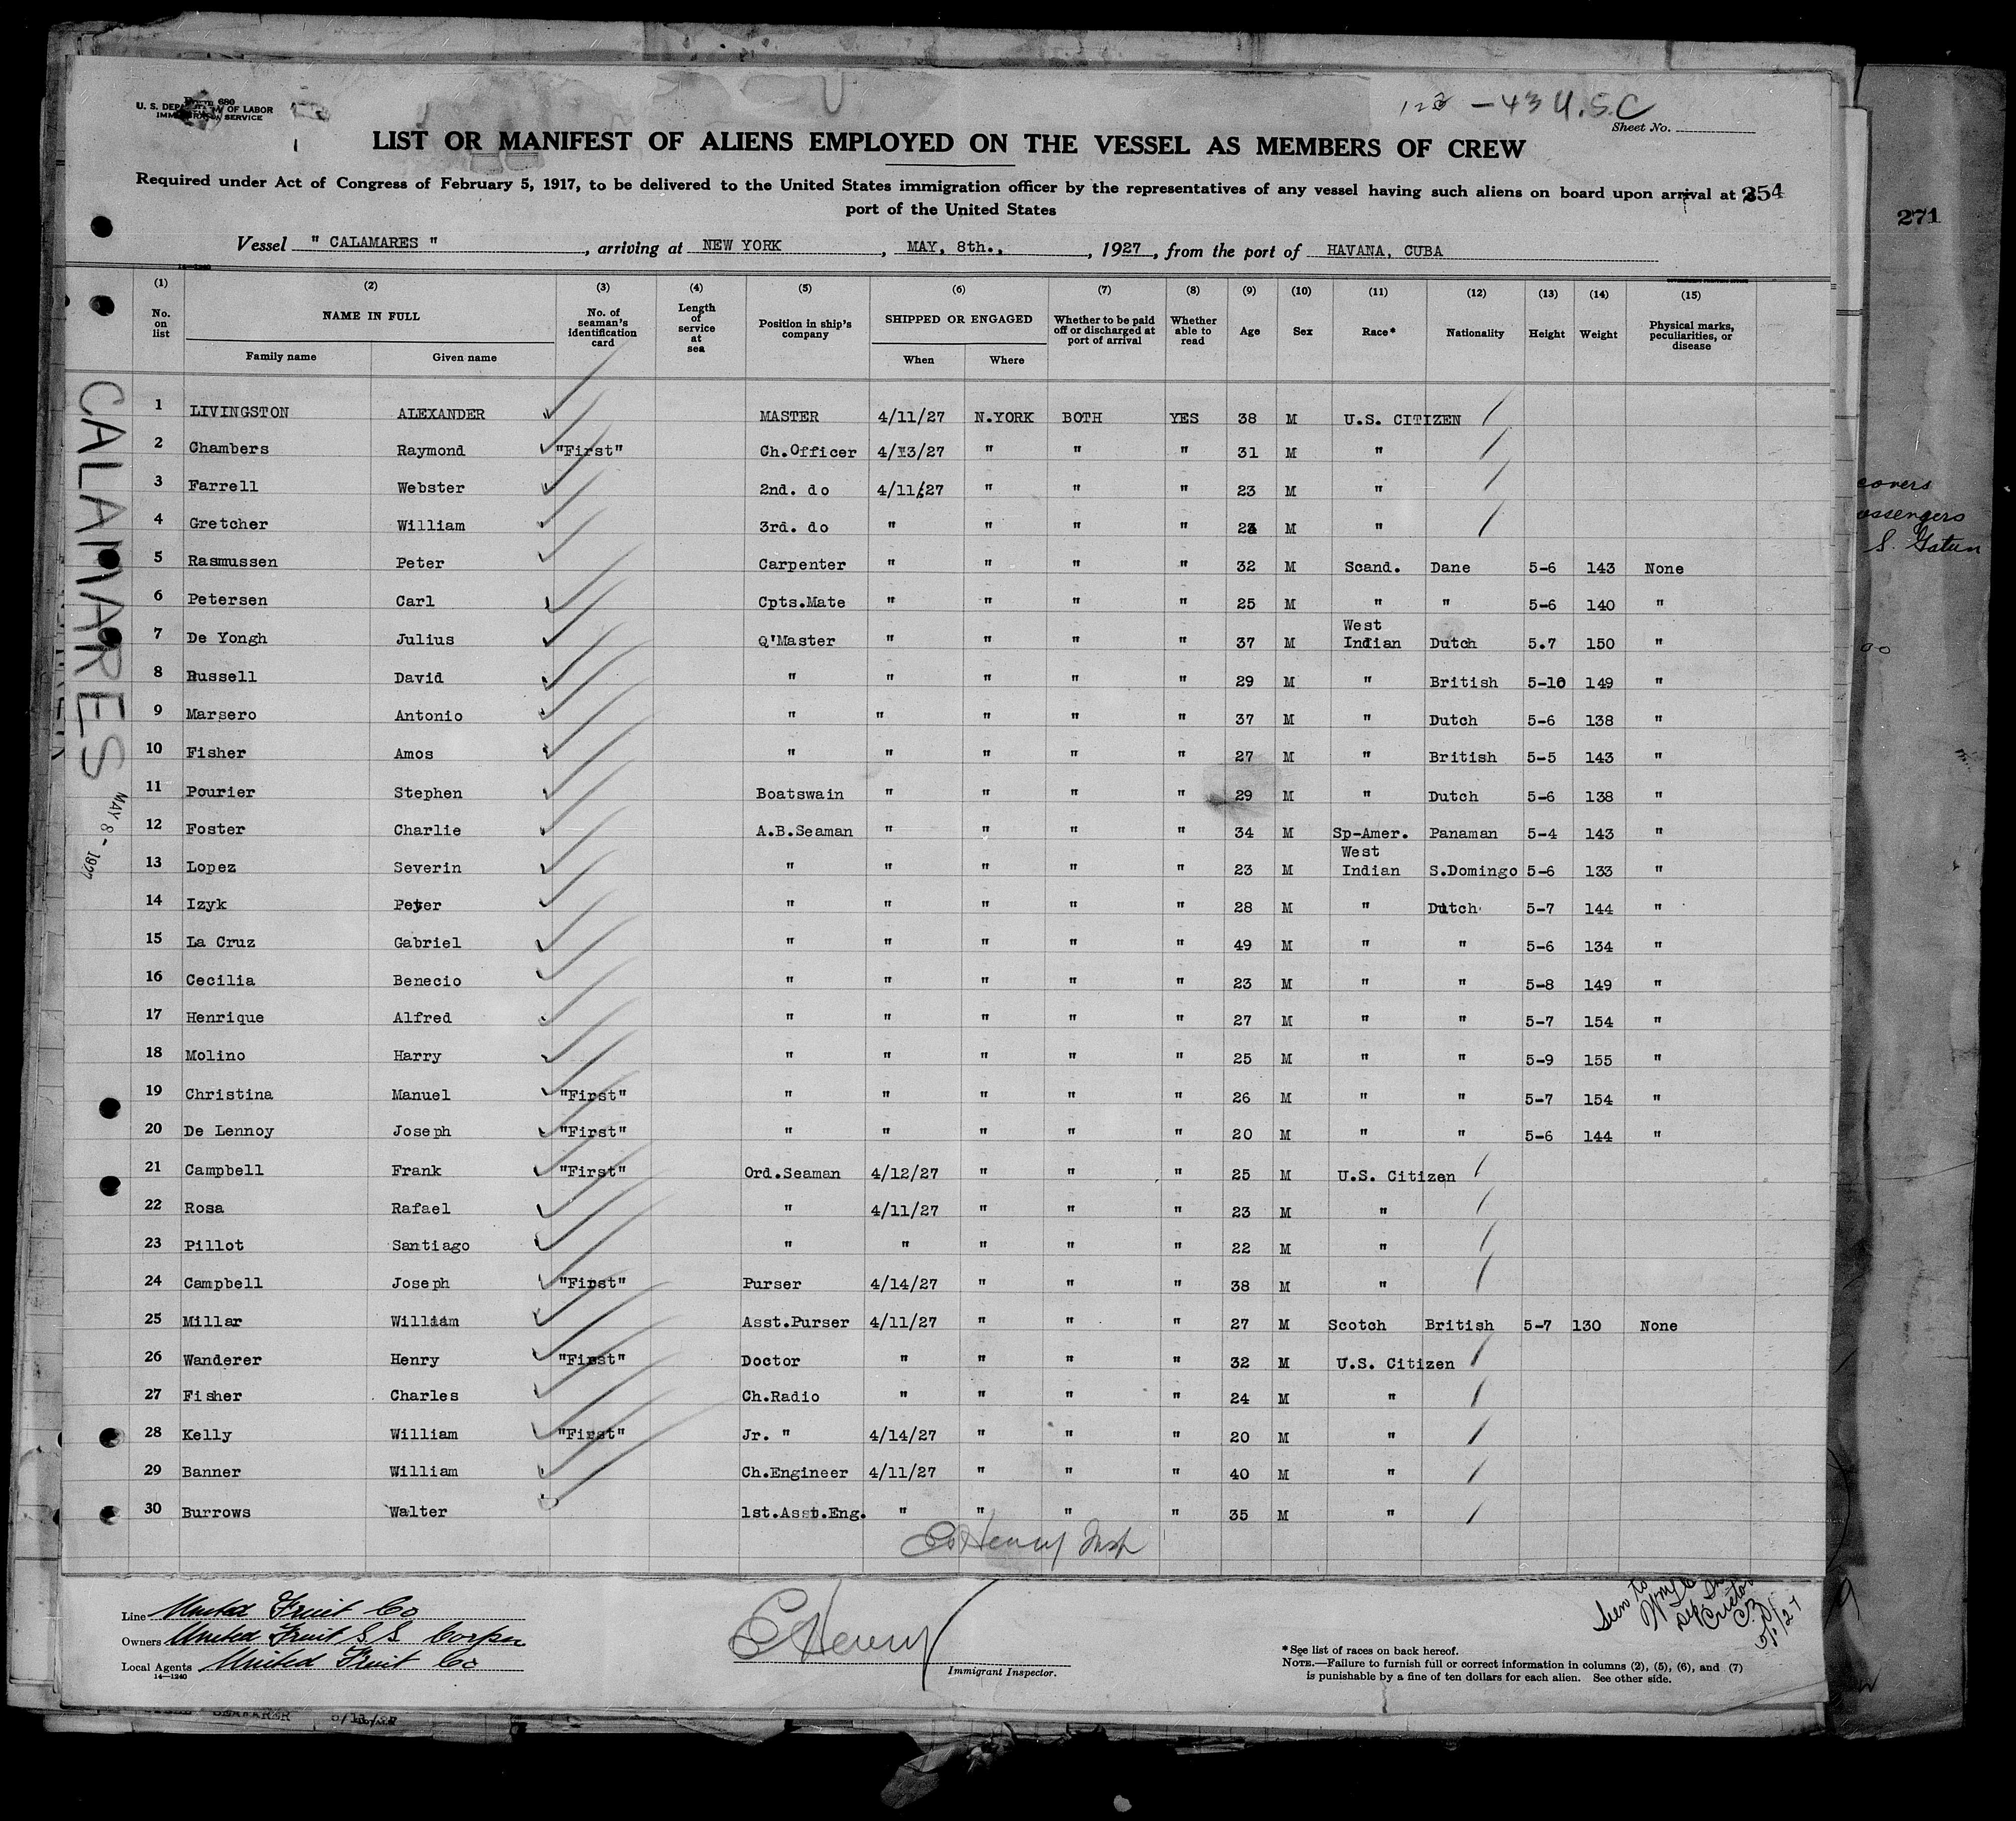 Form 680
U. S. DEPARTMENT OF LABOR
IMMIGRATION SERVICE
123 - 43 U.S.C
Sheet No.
LIST OR MANIFEST OF ALIENS EMPLOYED ON THE VESSEL AS MEMBERS OF CREW
Required under Act of Congress of February 5, 1917, to be delivered to the United States immigration officer by the representatives of any vessel having such aliens on board upon arrival at a
port of the United States
254
271
Vessel " CALAMARES " , arriving at NEW YORK , MAY, 8th., , 1927, from the port of HAVANA, CUBA
14—1240
(1) (2) (3) (4) (5) (6) (7) (8) (9) (10) (11) (12) (13) (14) (15)
No. on list NAME IN FULL No. of seaman's identification card Length of service at sea Position in ship's company SHIPPED OR ENGAGED Whether to be paid off or discharged at port of arrival Whether able to read Age Sex Race* Nationality Height Weight Physical marks, peculiarities, or disease
Family name Given name When Where
1 LIVINGSTON ALEXANDER MASTER 4/11/27 N.YORK BOTH YES 38 M U.S. CITIZEN
2 Chambers Raymond "First" Ch.Officer 4/13/27 " " " 31 M "
3 Farrell Webster 2nd. do 4/11/27 " " " 23 M "
4 Gretcher William 3rd. do " " " " M "
5 Rasmussen Peter Carpenter " " " " 32 M Scand. Dane 5-6 143 None
6 Petersen Carl Cpts.Mate " " " " 25 M " " 5-6 140 "
7 De Yongh Julius Q'Master " " " " 37 M West Indian Dutch 5.7 150 "
8 Russell David " " " " " 29 M " British 5-10 149 "
9 Marsero Antonio " " " " " 37 M " Dutch 5-6 138 "
10 Fisher Amos " " " " " 27 M " British 5-5 143 "
11 Pourier Stephen Boatswain " " " " 29 M " Dutch 5-6 138 "
12 Foster Charlie A.B.Seaman " " " " 34 M Sp-Amer. Panaman 5-4 143 "
13 Lopez Severin " " " " " 23 M West Indian S.Domingo 5-6 133 "
14 Izyk Peter " " " " " 28 M " Dutch 5-7 144 "
15 La Cruz Gabriel " " " " " 49 M " " 5-6 134 "
16 Cecilia Benecio " " " " " 23 M " " 5-8 149 "
17 Henrique Alfred " " " " " 27 M " " 5-7 154 "
18 Molino Harry " " " " " 25 M " " 5-9 155 "
19 Christina Manuel "First" " " " " " 26 M " " 5-7 154 "
20 De Lennoy Joseph "First" " " " " " 20 M " " 5-6 144 "
21 Campbell Frank "First" Ord.Seaman 4/12/27 " " " 25 M U.S. Citizen
22 Rosa Rafael " 4/11/27 " " " 23 M "
23 Pillot Santiago " " " " " 22 M "
24 Campbell Joseph "First" Purser 4/14/27 " " " 38 M "
25 Millar William Asst.Purser 4/11/27 " " " 27 M Scotch British 5-7 130 None
26 Wanderer Henry "First" Doctor " " " " 32 M U.S. Citizen
27 Fisher Charles Ch.Radio " " " " 24 M "
28 Kelly William "First" Jr. " 4/14/27 " " " 20 M "
29 Banner William Ch.Engineer 4/11/27 " " " 40 M "
30 Burrows Walter 1st.Asst.Eng. " " " " 35 M "
CALAMARES
MAY 8 - 1927
covers
S. Gatun
Henry Insp
Line United Fruit Co
Owners United Fruit S S Corpn
Local Agents United Fruit Co
14—1240
Henry
Immigrant Inspector.
*See list of races on back hereof.
NOTE.—Failure to furnish full or correct information in columns (2), (5), (6), and (7)
is punishable by a fine of ten dollars for each alien. See other side.